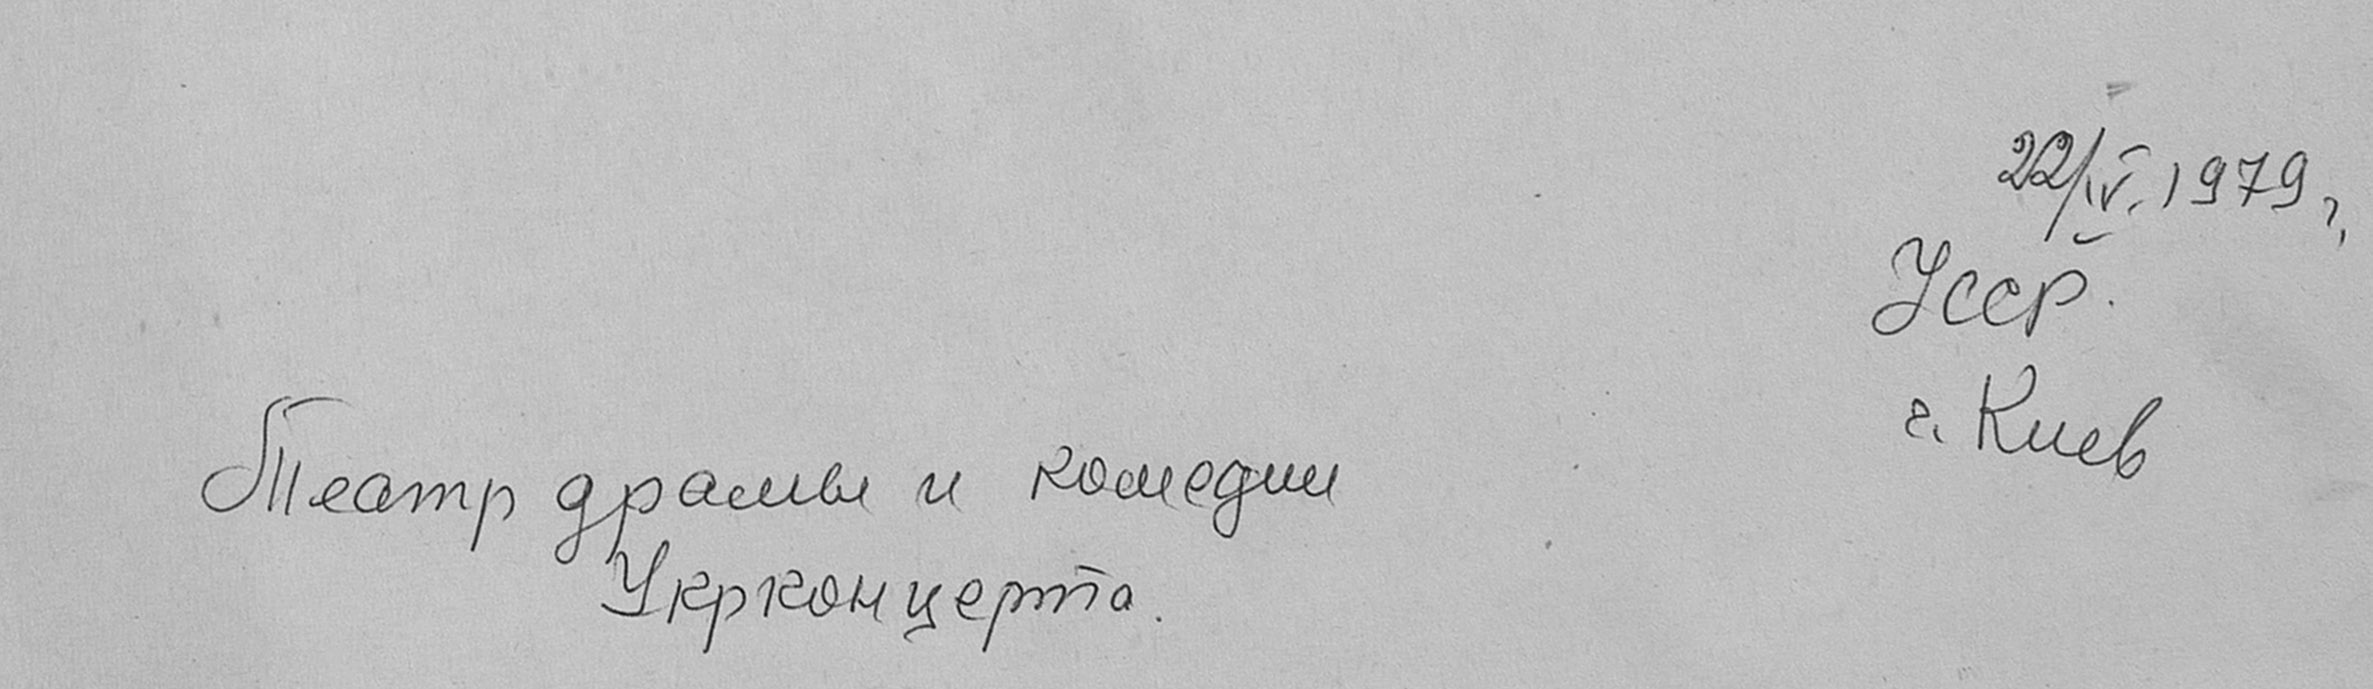 22/IV.1979г.
УССР.
г. Киев
Театр драмы и комедии
Укрконцерта.